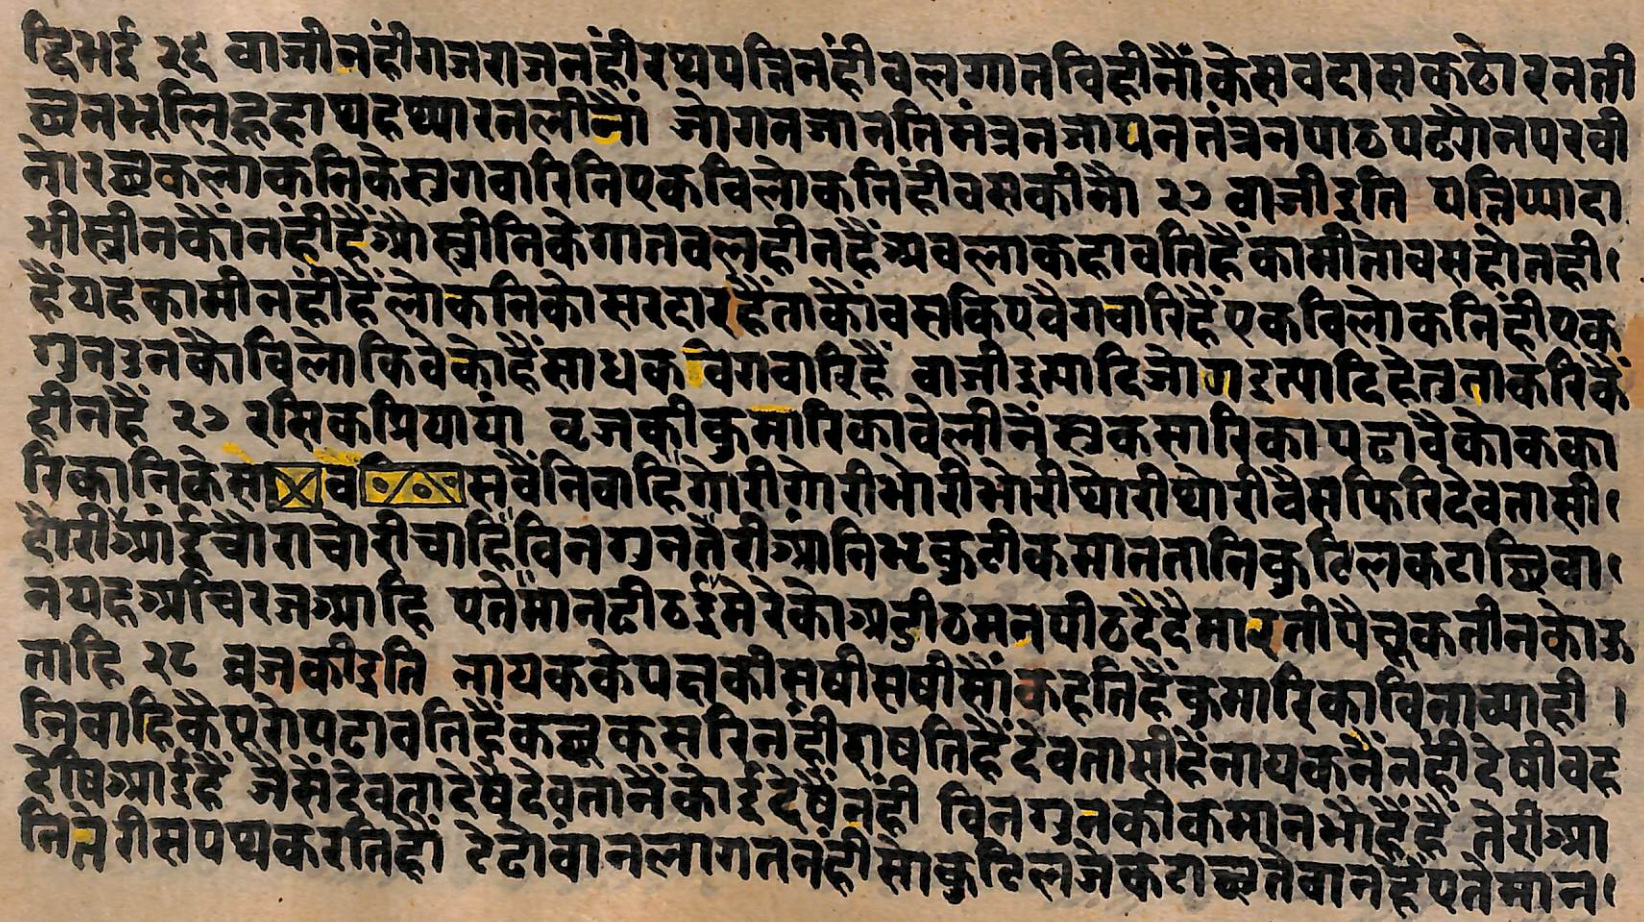 द्विभई २६ वाजीनंहीगजराजनंहीरथपत्तिनंहीवलगातविहीनौंकेसवदासकठोरनती
छनभूलिहूहाथहथ्यारनलीनौं जोगनजानतिमंत्रनजापनतंत्रनपाठपढ्यौनपरवी
नोरछकलोकनिकेसुगवारिनिएकविलोकनिंहीवसकीनौ २७ वाजीइति पत्तिप्यादा
भीस्त्रीनकौंनंहीहैंऔस्त्रीनिकेगातवलहीनहैंअवलाकहावतिहैंकामीतोवसहोतही।
हैंयहकामीनंहीहैंलोकनिकोसरदारहैंताकौंवसकिएवैगवारिहैंएकविलोकनिंहीएक
गुनउनकौविलोकिवेकोहैंसाधकविगवारिहैं वाजीइत्यादिजोगइत्यादिहेतुताकरिकैं
हीनहैं २७ रसिकप्रियायां वृजकीकुमारिकावेलीनेंसुकसारिकापढावैकोकका
रिकानिकेसवसवैंनिवाहिगोरीगोरीभोरीभोरीथोरीथोरीवैसफिरिदेवतासी।
दौरीआंईचौराचोरीचाहिंविनगुनतैरीआनिभृकुटीकमानतानिकुटिलकटाछिवा।
नयहअचिरजआहि एतेमानढीठईमेरेकोअदीठमनपीठदैदैमारतीपैचूकतीनकोऊ
ताहि २८ व्रजकीइति नायककेपक्षकीसषीसषीसौंकहतिहैंकुमारिकाविनाव्याही ।
निवाहिकैपूरोपढावतिहैंकछूकसरिनंहीराषतिहैंदेवतासीहैंनायकनैंनंहीदेषीवह
देषिआईहैं जैसेंदेवतादेषेंदेवतानैंकोईदेषैंनंही विनगुनकीकमानभौंहैंहैं तेरीआ
नितेरीसपथकरतिहौं टेढोवांनलागतनंहीसोकुटिलजेकटाछतेवानहैंएतेमान।